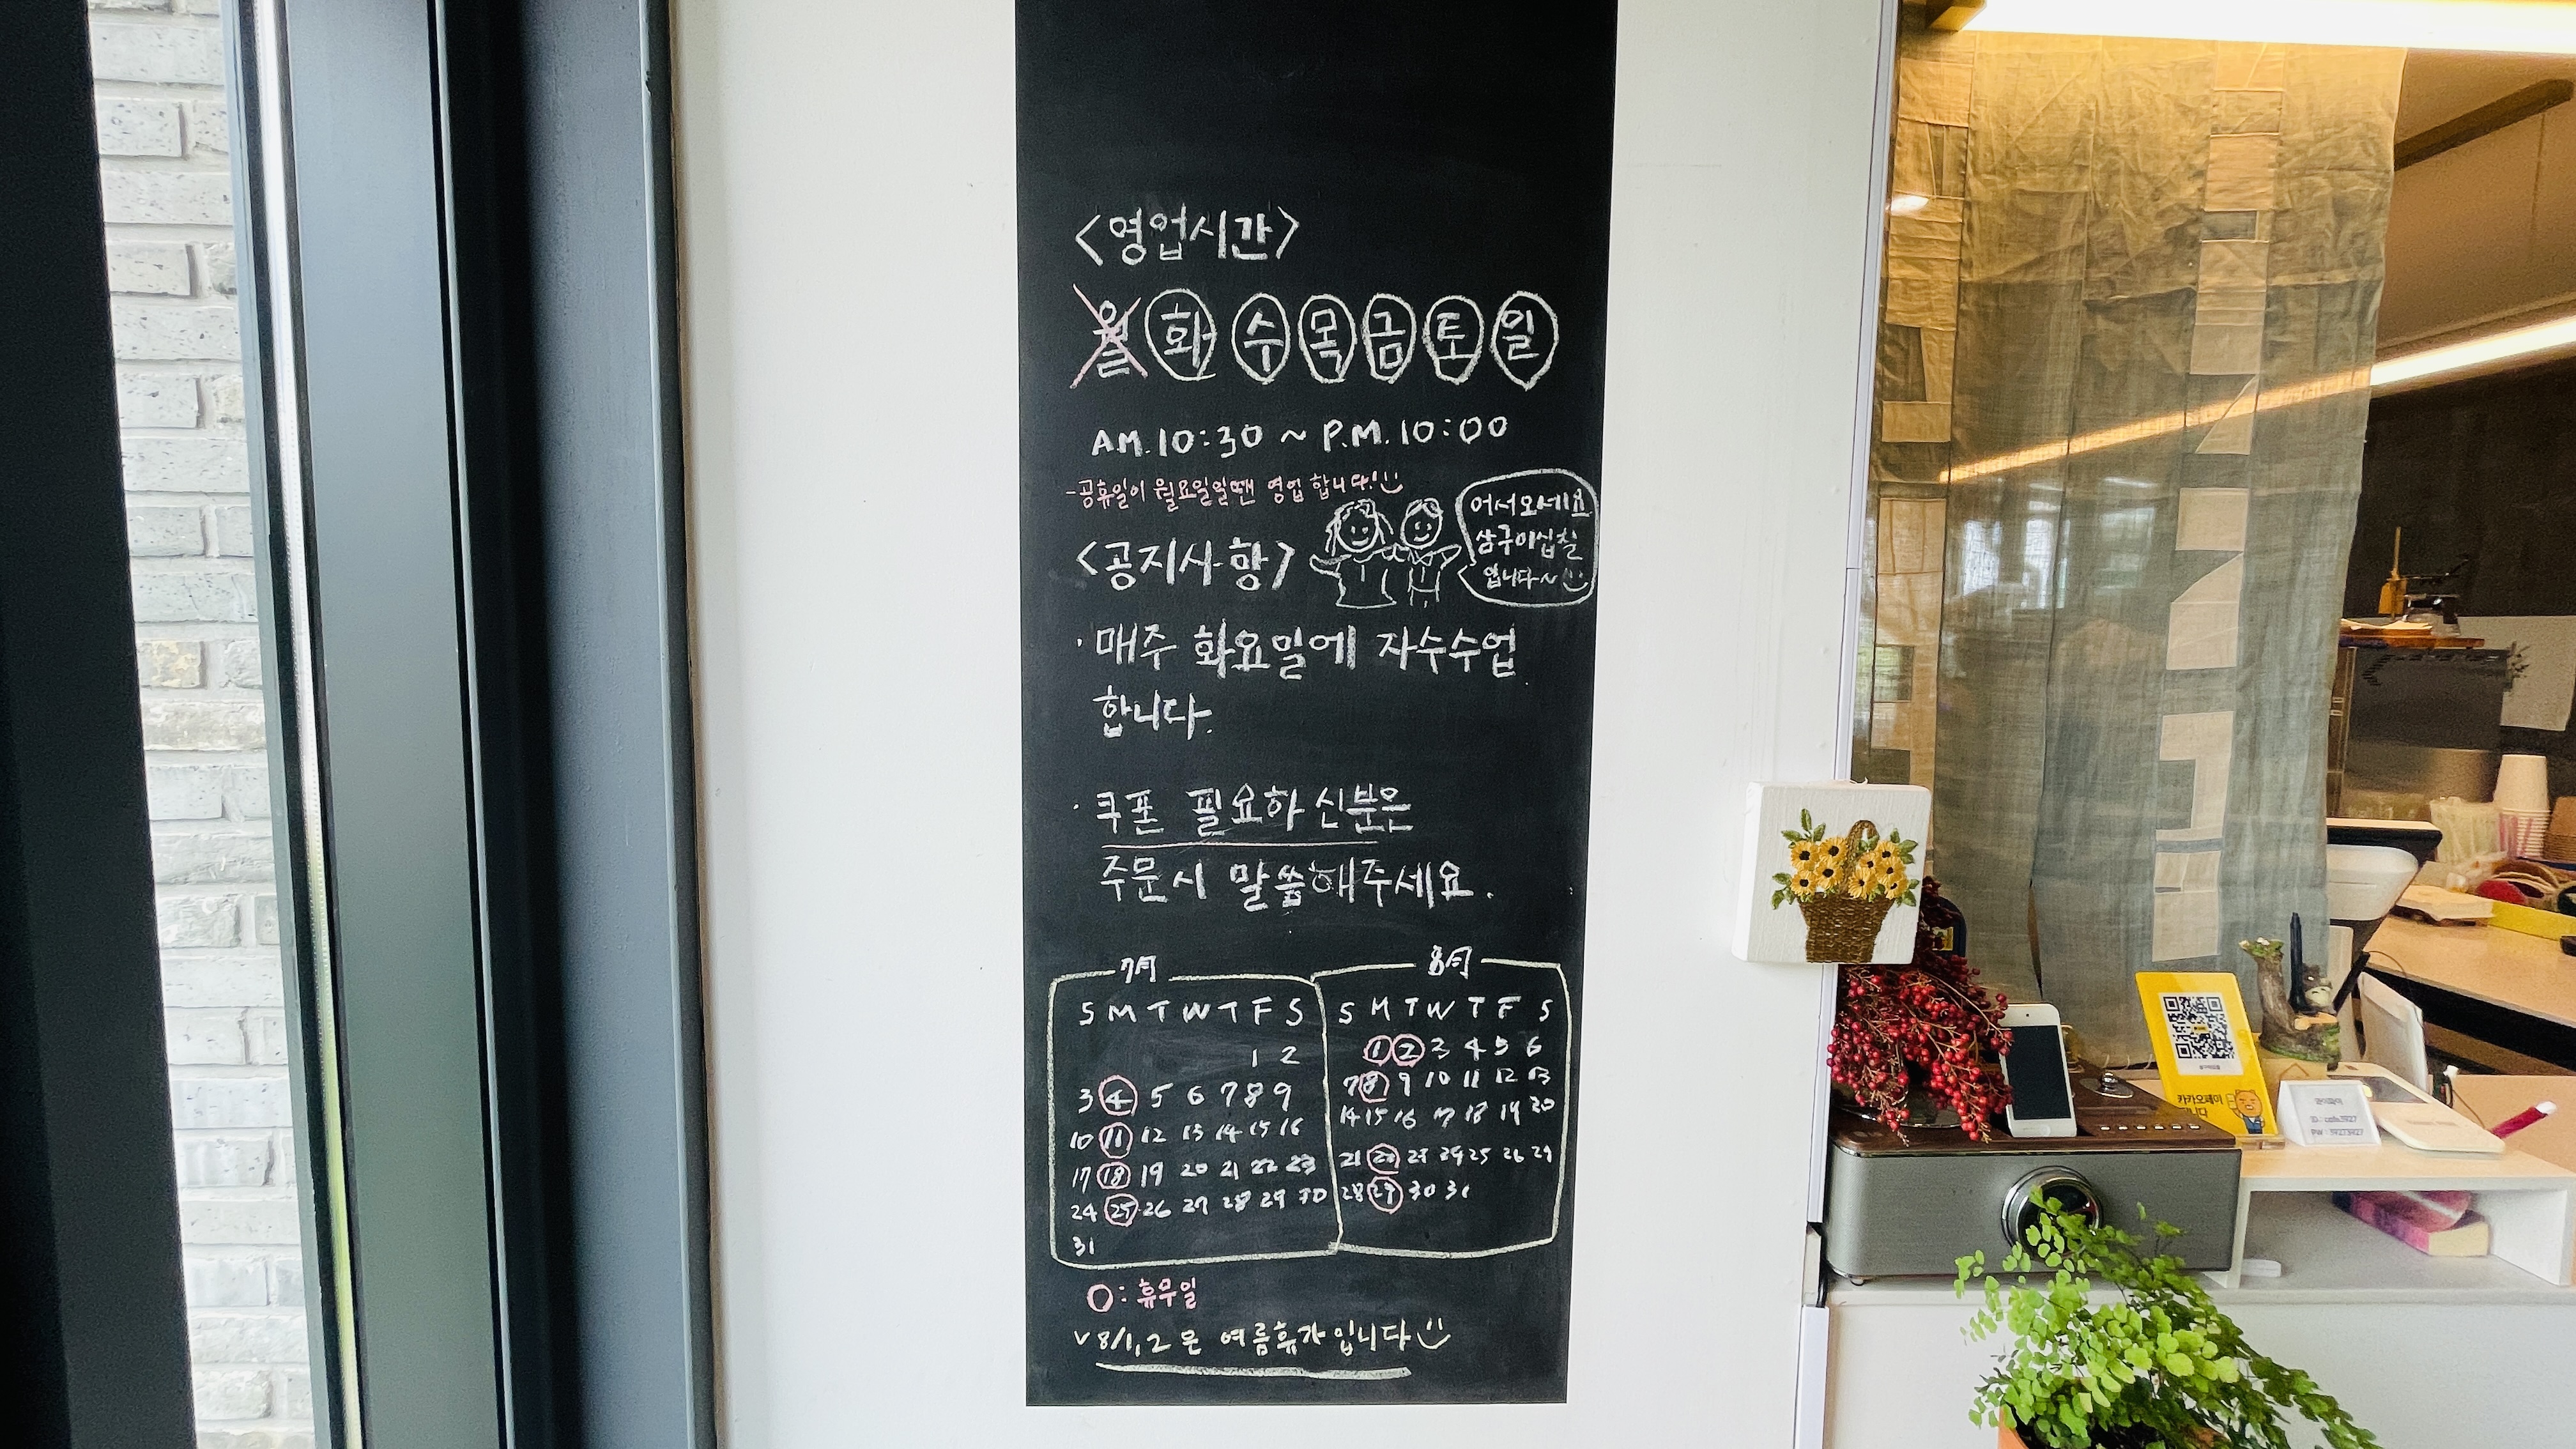 <영업시간>
월 화 수 목 금 토 일
A.M. 10:30 ~ P.M. 10:00
-공휴일이 월요일일땐 영업 합니다!
어서오세요
삼구이십칠
입니다~
<공지사항>
· 매주 화요일에 자수수업
합니다.
· 쿠폰 필요하신분은
주문시 말씀해주세요.
7月
S M T W T F S
1 2
3 4 5 6 7 8 9
10 11 12 13 14 15 16
17 18 19 20 21 22 23
24 25 26 27 28 29 30
31
8月
S M T W T F S
1 2 3 4 5 6
7 8 9 10 11 12 13
14 15 16 17 18 19 20
21 22 23 24 25 26 27
28 29 30 31
O: 휴무일
v 8/1, 2 은 여름휴가입니다
카카오페이
와이파이
ID : cafe3927
PW : 39273927